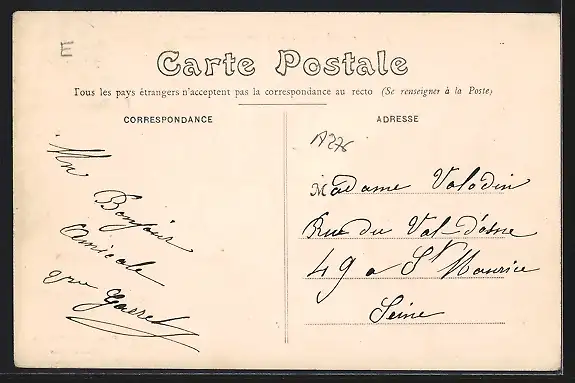 E
Carte Postale
Tous les pays étrangers n'acceptent pas la correspondance au recto (Se renseigner à la Poste)
CORRESPONDANCE
ADRESSE
Un
Bonjour
Amicale
Madame Valodin
Rue du Val d'osne
49 a St Maurice
Seine